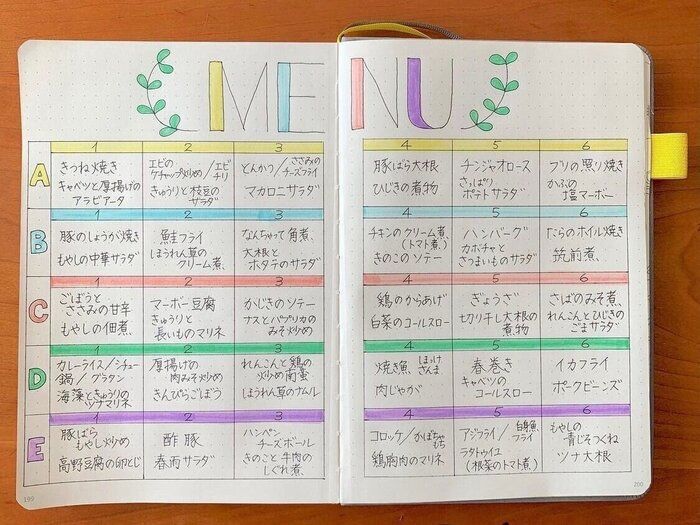 MENU
1 2 3 4 5 6
A
きつね焼き
キャベツと厚揚げの
アラビアータ
エビの
ケチャップ炒め/エビチリ
きゅうりと枝豆の
サラダ
とんかつ/ささみの
チーズフライ
マカロニサラダ
豚ばら大根
ひじきの煮物
チンジャオロース
さっぱり
ポテトサラダ
ブリの照り焼き
かぶの
塩マーボー
1 2 3 4 5 6
B
豚のしょうが焼き
もやしの中華サラダ
鮭フライ
ほうれん草の
クリーム煮
なんちゃって角煮
大根と
ホタテのサラダ
チキンのクリーム煮
(トマト煮)
きのこのソテー
ハンバーグ
カボチャと
さつまいものサラダ
たらのホイル焼き
筑前煮
1 2 3 4 5 6
C
ごぼうと
ささみの甘辛
もやしの佃煮
マーボー豆腐
きゅうりと
長いものマリネ
かじきのソテー
ナスとパプリカの
みそ炒め
鶏のからあげ
白菜のコールスロー
ぎょうざ
切り干し大根の
煮物
さばのみそ煮
れんこんとひじきの
ごまサラダ
1 2 3 4 5 6
D
カレーライス/シチュー
鍋/グラタン
海藻ときゅうりの
ツナマリネ
厚揚げの
肉みそ炒め
きんぴらごぼう
れんこんと鶏の
炒め南蛮
ほうれん草のナムル
焼き魚 ほっけ
さんま
肉じゃが
春巻き
キャベツの
コールスロー
イカフライ
ポークビーンズ
1 2 3 4 5 6
E
豚ばら
もやし炒め
高野豆腐の卵とじ
酢豚
春雨サラダ
ハンペン
チーズボール
きのこと牛肉の
しぐれ煮
コロッケ/かぼちゃもち
鶏胸肉のマリネ
アジフライ/白身魚
フライ
ラタトゥイユ
(根菜のトマト煮)
もやしの
青じそつくね
ツナ大根
199
200